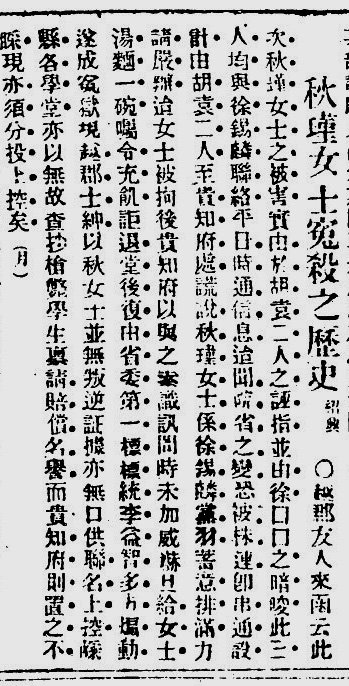 秋瑾女士冤殺之歷史 紹興 ○越郡友人來函云此
次秋瑾女士之被害實由於胡袁二人之誣指並由徐口口之暗唆此三
人均與徐錫麟聯絡平日時通信息洎聞皖省之變恐被株連卽串通設
計由胡袁二人至貴知府處謊說秋瑾女士係徐錫麟黨羽蓄意排滿力
請嚴辦迨女士被拘後貴知府以與之素識訊問時未加威嚇且給女士
湯麵一碗囑令充飢詎退堂後復由省委第一標標統李益智多方煽動
遂成冤獄現越郡士紳以秋女士並無叛逆証據亦無口供聯名上控嵊
縣各學堂亦以無故查抄槍斃學生稟請賠償名譽而貴知府則置之不
睬現亦須分投上控矣 (月)